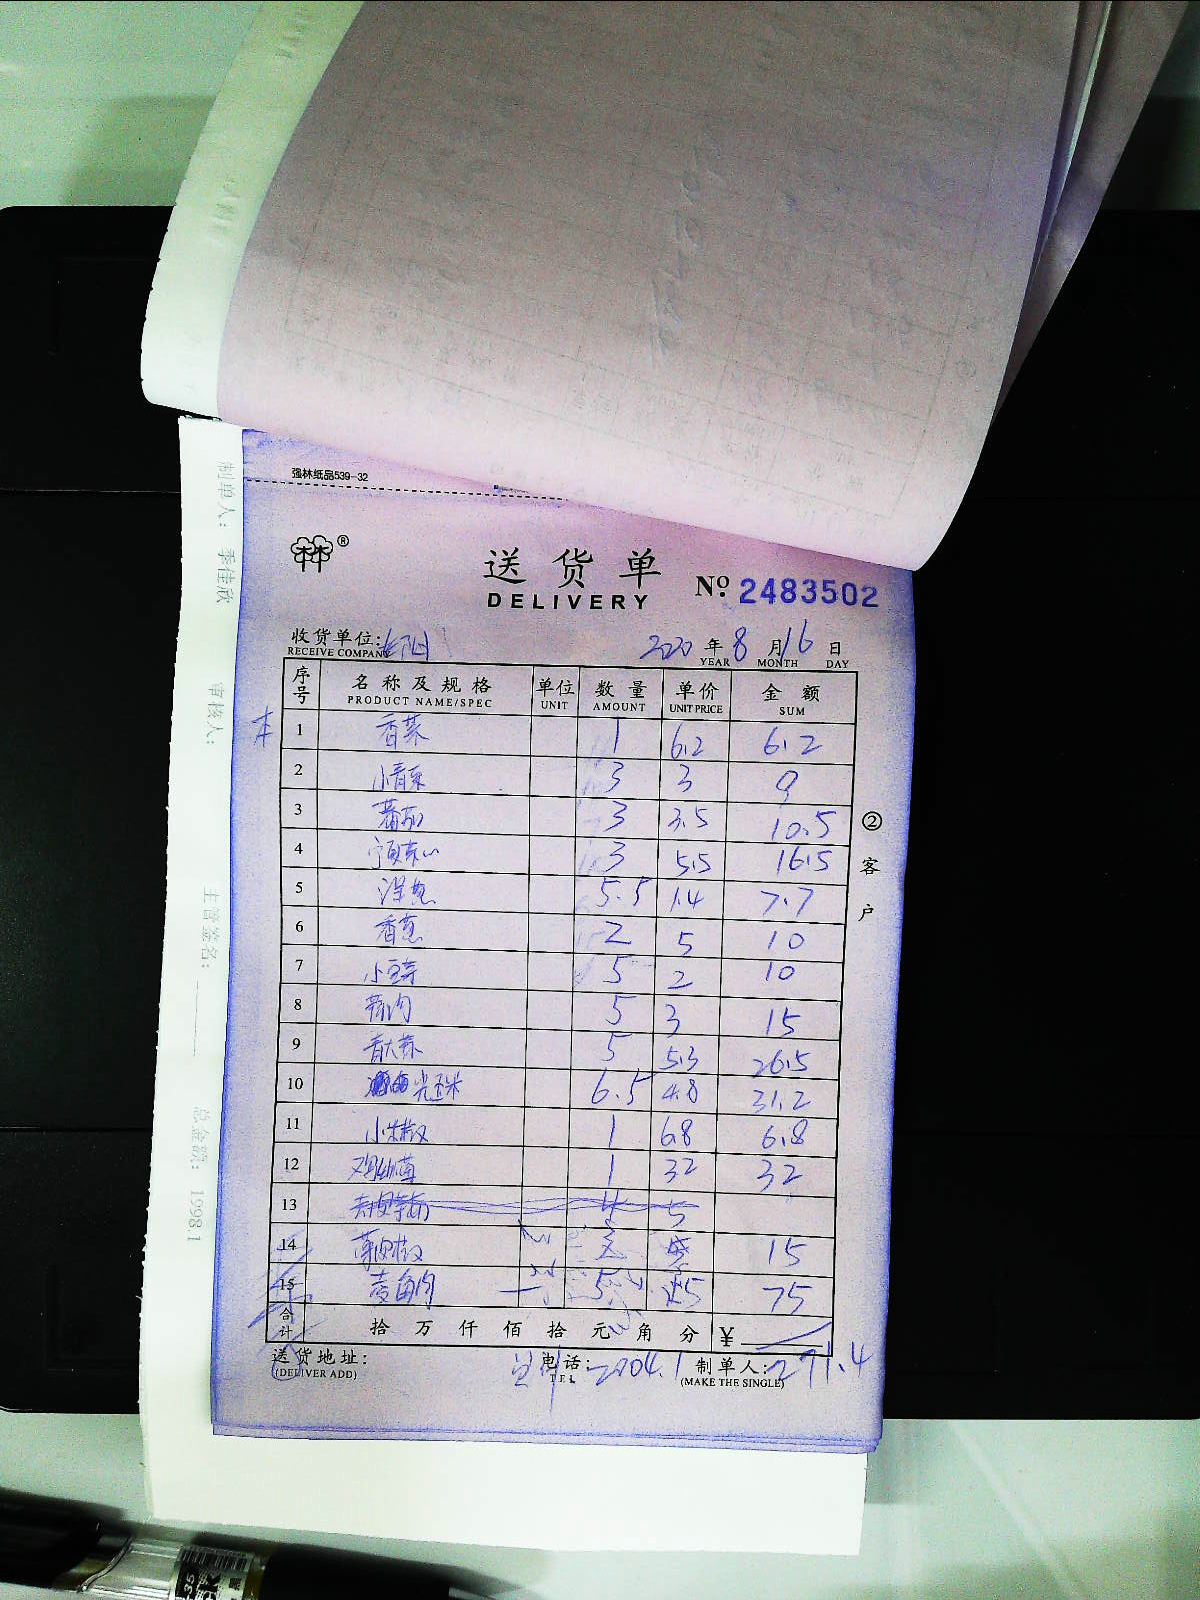 强林纸品539-32
®
送货单
DELIVERY
No. 2483502
收货单位:
RECEIVE COMPANY
2020 年 8 月 16 日
YEAR MONTH DAY
序号 名称及规格 单位 数量 单价 金额
PRODUCT NAME/SPEC UNIT AMOUNT UNIT PRICE SUM
1 香菜 1 6.2 6.2
2 小青菜 3 3 9
3 蕃茄 3 3.5 10.5
4 3 5.5 16.5
5 洋葱 5.5 1.4 7.7
6 香葱 2 5 10
7 小豆芽 5 2 10
8 5 3 15
9 青大蒜 5 5.3 26.5
10 6.5 4.8 31.2
11 小米椒 1 6.8 6.8
12 1 32 32
13 5
14 薄皮椒 15
15 菱角肉 5 15 75
合计 拾 万 仟 佰 拾 元 角 分 ¥
271.4
送货地址:
(DELIVER ADD)
电话:
TEL
2004.1
制单人:
(MAKE THE SINGLE)
②客户
制单人: 季佳欣
审核人:
主管签名:
总金额: 1998.1